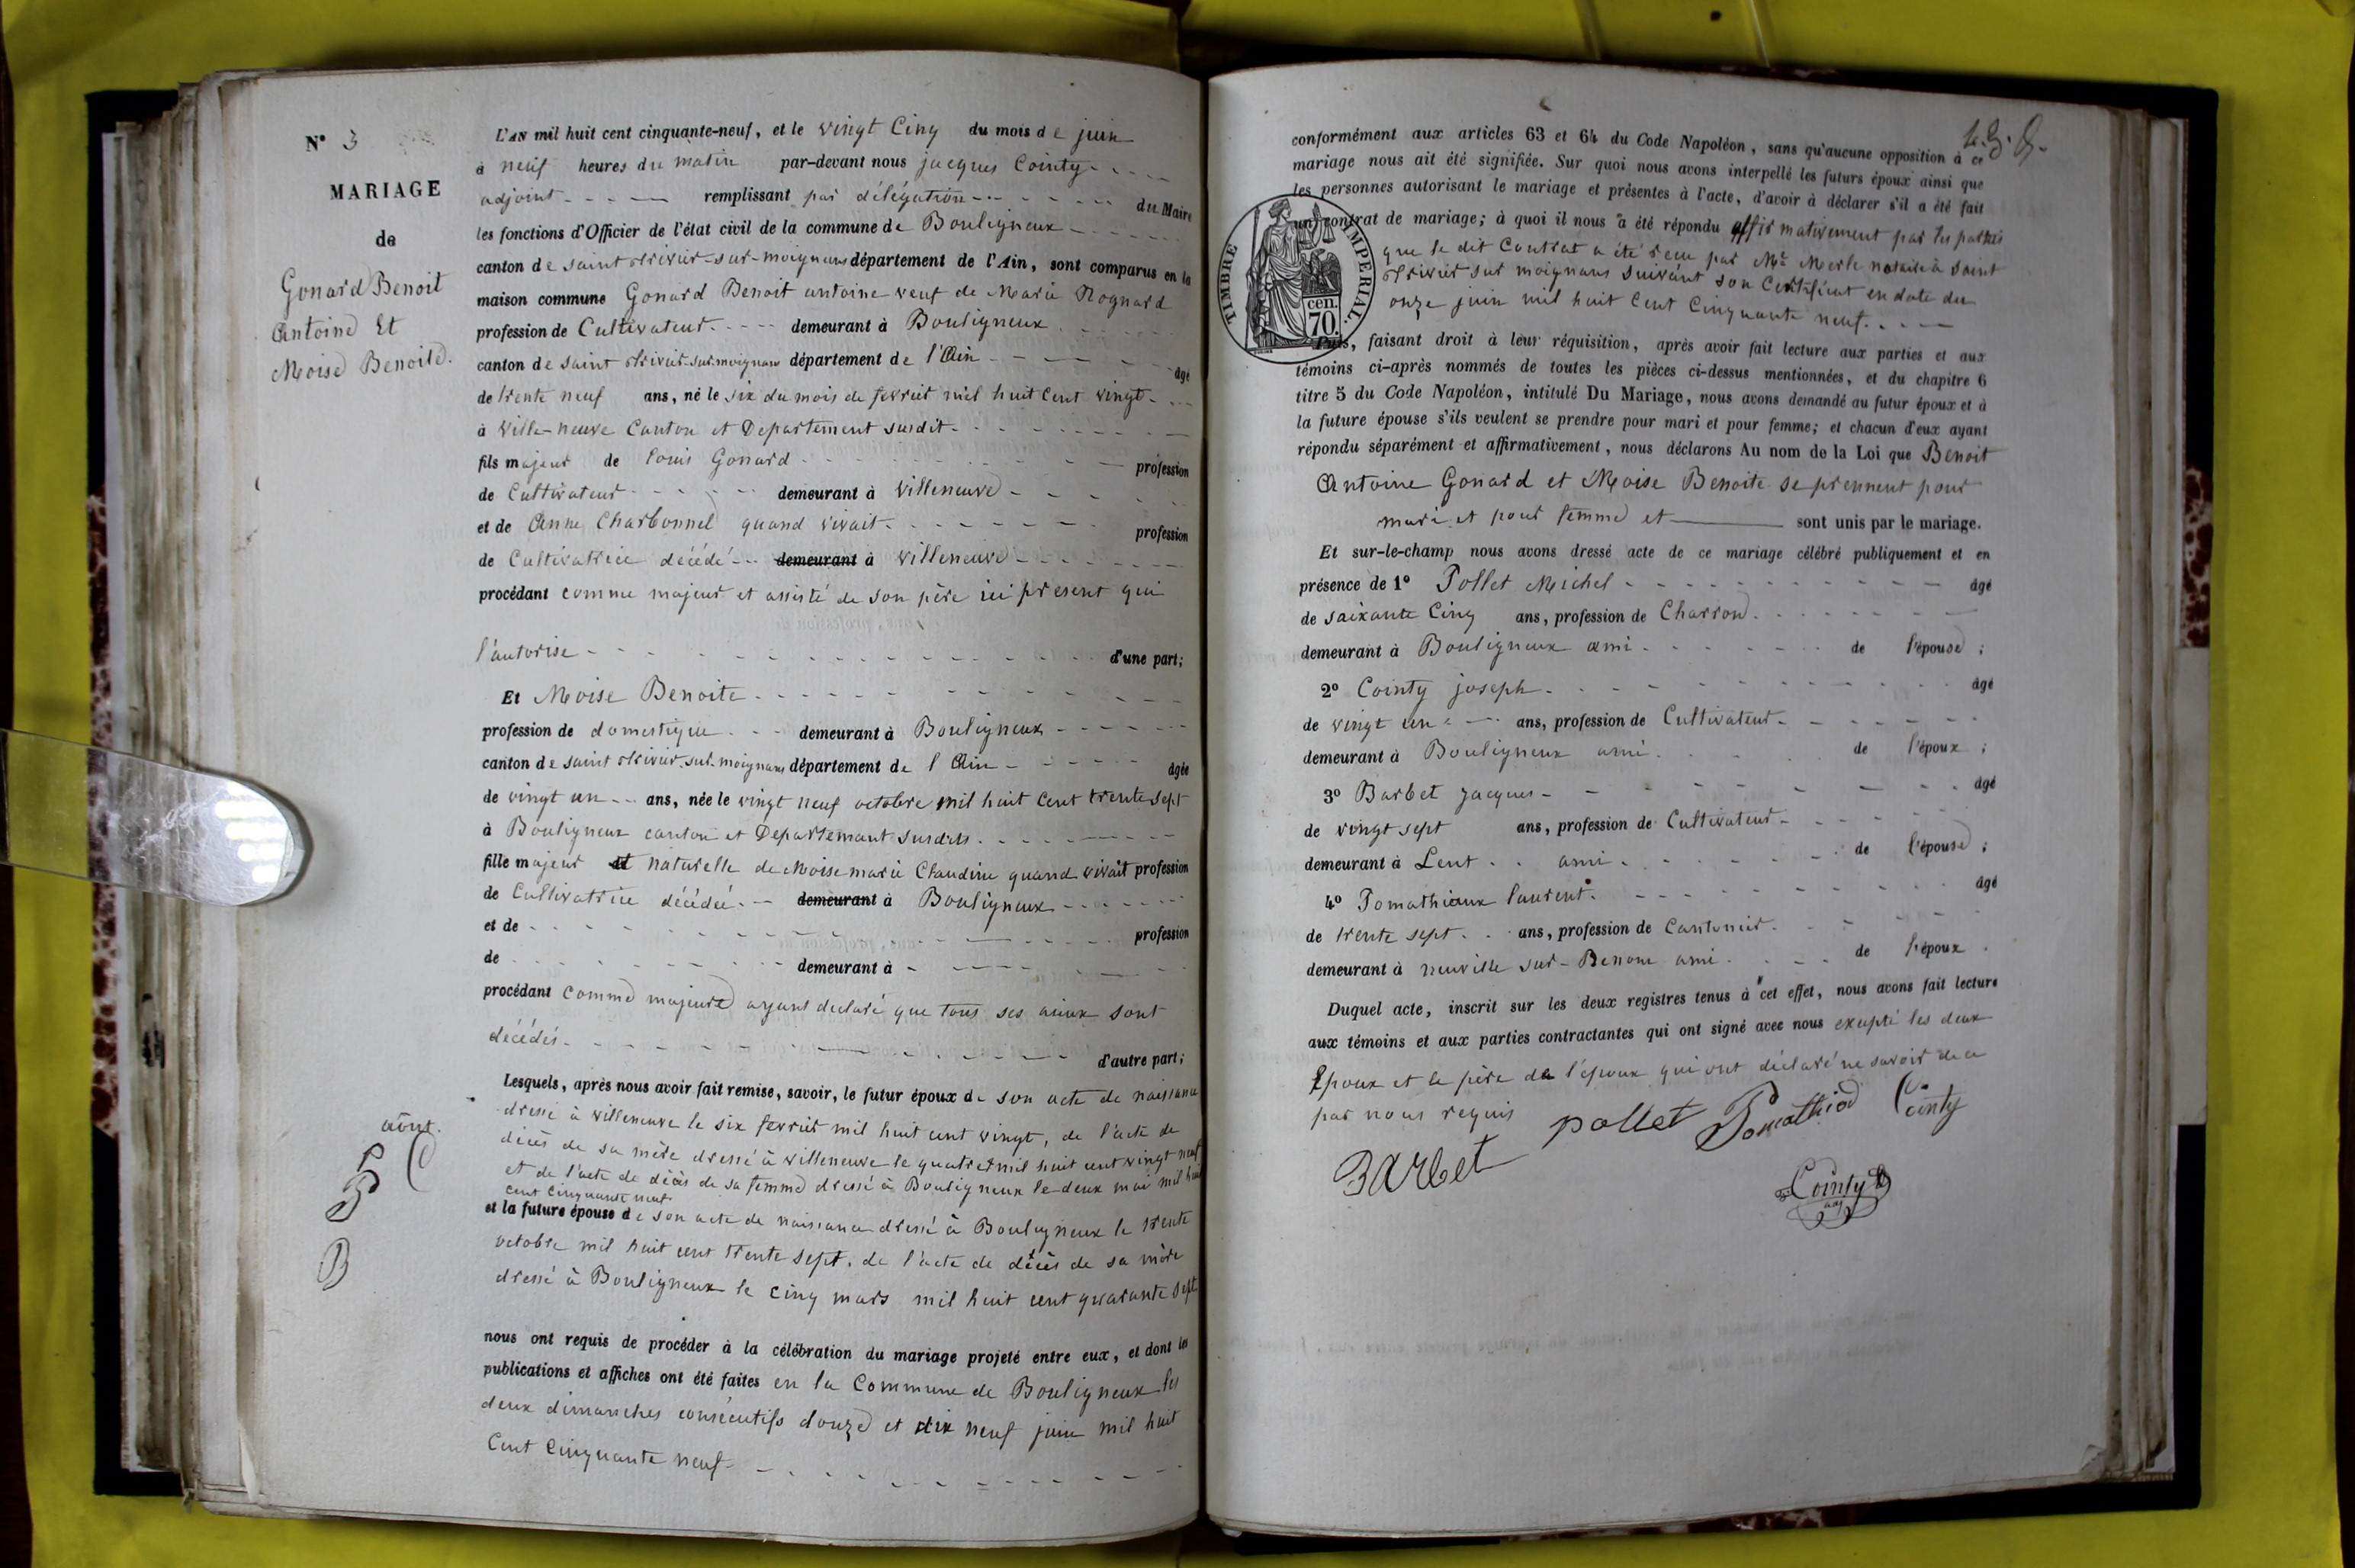 N° 3
MARIAGE
de
Gonard Benoit
Antoine Et
Moise Benoite.
L'AN mil huit cent cinquante-neuf, et le vingt Cinq du mois de juin
à neuf heures du matin par-devant nous jacques Cointy
adjoint remplissant par délégation du Maire
les fonctions d'Officier de l'état civil de la commune de Bouligneux
canton de saint trivier-sur-moignans département de l'Ain, sont comparus en la
maison commune Gonard Benoit antoine veuf de Marie Rognard
profession de Cultivateur demeurant à Bouligneux
canton de saint trivier-sur-moignans département de l'Ain âgé
de trente neuf ans, né le six du mois de fevrier mil huit Cent vingt
à Ville-neuve Canton et Departement susdit
fils majeur de louis Gonard profession
de Cultivateur demeurant à villeneuve
et de Anne Charbonnel quand vivait profession
de Cultivatrice décédé demeurant à villeneuve
procédant comme majeur et assisté de son père ici present qui
l'autorise d'une part;
Et Moise Benoite
profession de domestique demeurant à Bouligneux
canton de saint trivier-sur-moignans département de l'Ain âgée
de vingt un ans, née le vingt neuf octobre mil huit Cent trente sept
à Bouligneux canton et Departemant susdits
fille majeur et naturelle de Moise marie Claudine quand vivait profession
de Cultivatrice décédée demeurant à Bouligneux
et de profession
de demeurant à
procédant comme majeure ayant declaré que tous ses aieux sont
décédés d'autre part;
Lesquels, après nous avoir fait remise, savoir, le futur époux de son acte de naissance
dressé à villeneuve le six fevrier mil huit cent vingt, de l'acte de
décès de sa mère dressé à villeneuve le quatre mil huit cent vingt neuf
et de l'acte de décès de sa femme dressé à Bouligneux le deux mai mil huit
cent cinquante neuf
aôut.
et la future épouse de son acte de naissance dressé à Bouligneux le trente
octobre mil huit cent trente sept. de l'acte de décès de sa mère
dressé à Bouligneux le cinq mars mil huit cent quarante sept
nous ont requis de procéder à la célébration du mariage projeté entre eux, et dont les
publications et affiches ont été faites en la Commune de Bouligneux les
deux dimanches consécutifs douze et dix neuf juin mil huit
Cent Cinquante neuf
conformément aux articles 63 et 64 du Code Napoléon, sans qu'aucune opposition à ce
mariage nous ait été signifiée. Sur quoi nous avons interpellé les futurs époux ainsi que
les personnes autorisant le mariage et présentes à l'acte, d'avoir à déclarer s'il a été fait
un contrat de mariage; à quoi il nous a été répondu affirmativement par les parties
que le dit Contrat a été recu par Me Merle notaire à saint
trivier sur moignans suivant son Certificat en date du
onze juin mil huit Cent Cinquante neuf.
TIMBRE IMPERIAL.
cen.
70.
Puis, faisant droit à leur réquisition, après avoir fait lecture aux parties et aux
témoins ci-après nommés de toutes les pièces ci-dessus mentionnées, et du chapitre 6
titre 5 du Code Napoléon, intitulé Du Mariage, nous avons demandé au futur époux et à
la future épouse s'ils veulent se prendre pour mari et pour femme; et chacun d'eux ayant
répondu séparément et affirmativement, nous déclarons Au nom de la Loi que Benoit
Antoine Gonard et Moise Benoite se prennent pour
mari et pour femme et sont unis par le mariage.
Et sur-le-champ nous avons dressé acte de ce mariage célébré publiquement et en
présence de 1° Pollet Michel âgé
de saixante Cinq ans, profession de Charron
demeurant à Bouligneux ami de l'épouse;
2° Cointy joseph âgé
de vingt un ans, profession de Cultivateur
demeurant à Bouligneux ami de l'époux;
3° Barbet jacques âgé
de vingt sept ans, profession de Cultivateur
demeurant à Lent ami de l'épouse;
4° Pomathiaux laurent. âgé
de trente sept ans, profession de Cantonier
demeurant à neuville sur-Renom ami de l'époux
Duquel acte, inscrit sur les deux registres tenus à cet effet, nous avons fait lecture
aux témoins et aux parties contractantes qui ont signé avec nous exepté les deux
Epoux et le père de l'époux qui ont déclaré ne savoir de ce
par nous requis
pollet Pomathiod Cointy
BArbet
Cointy
adj